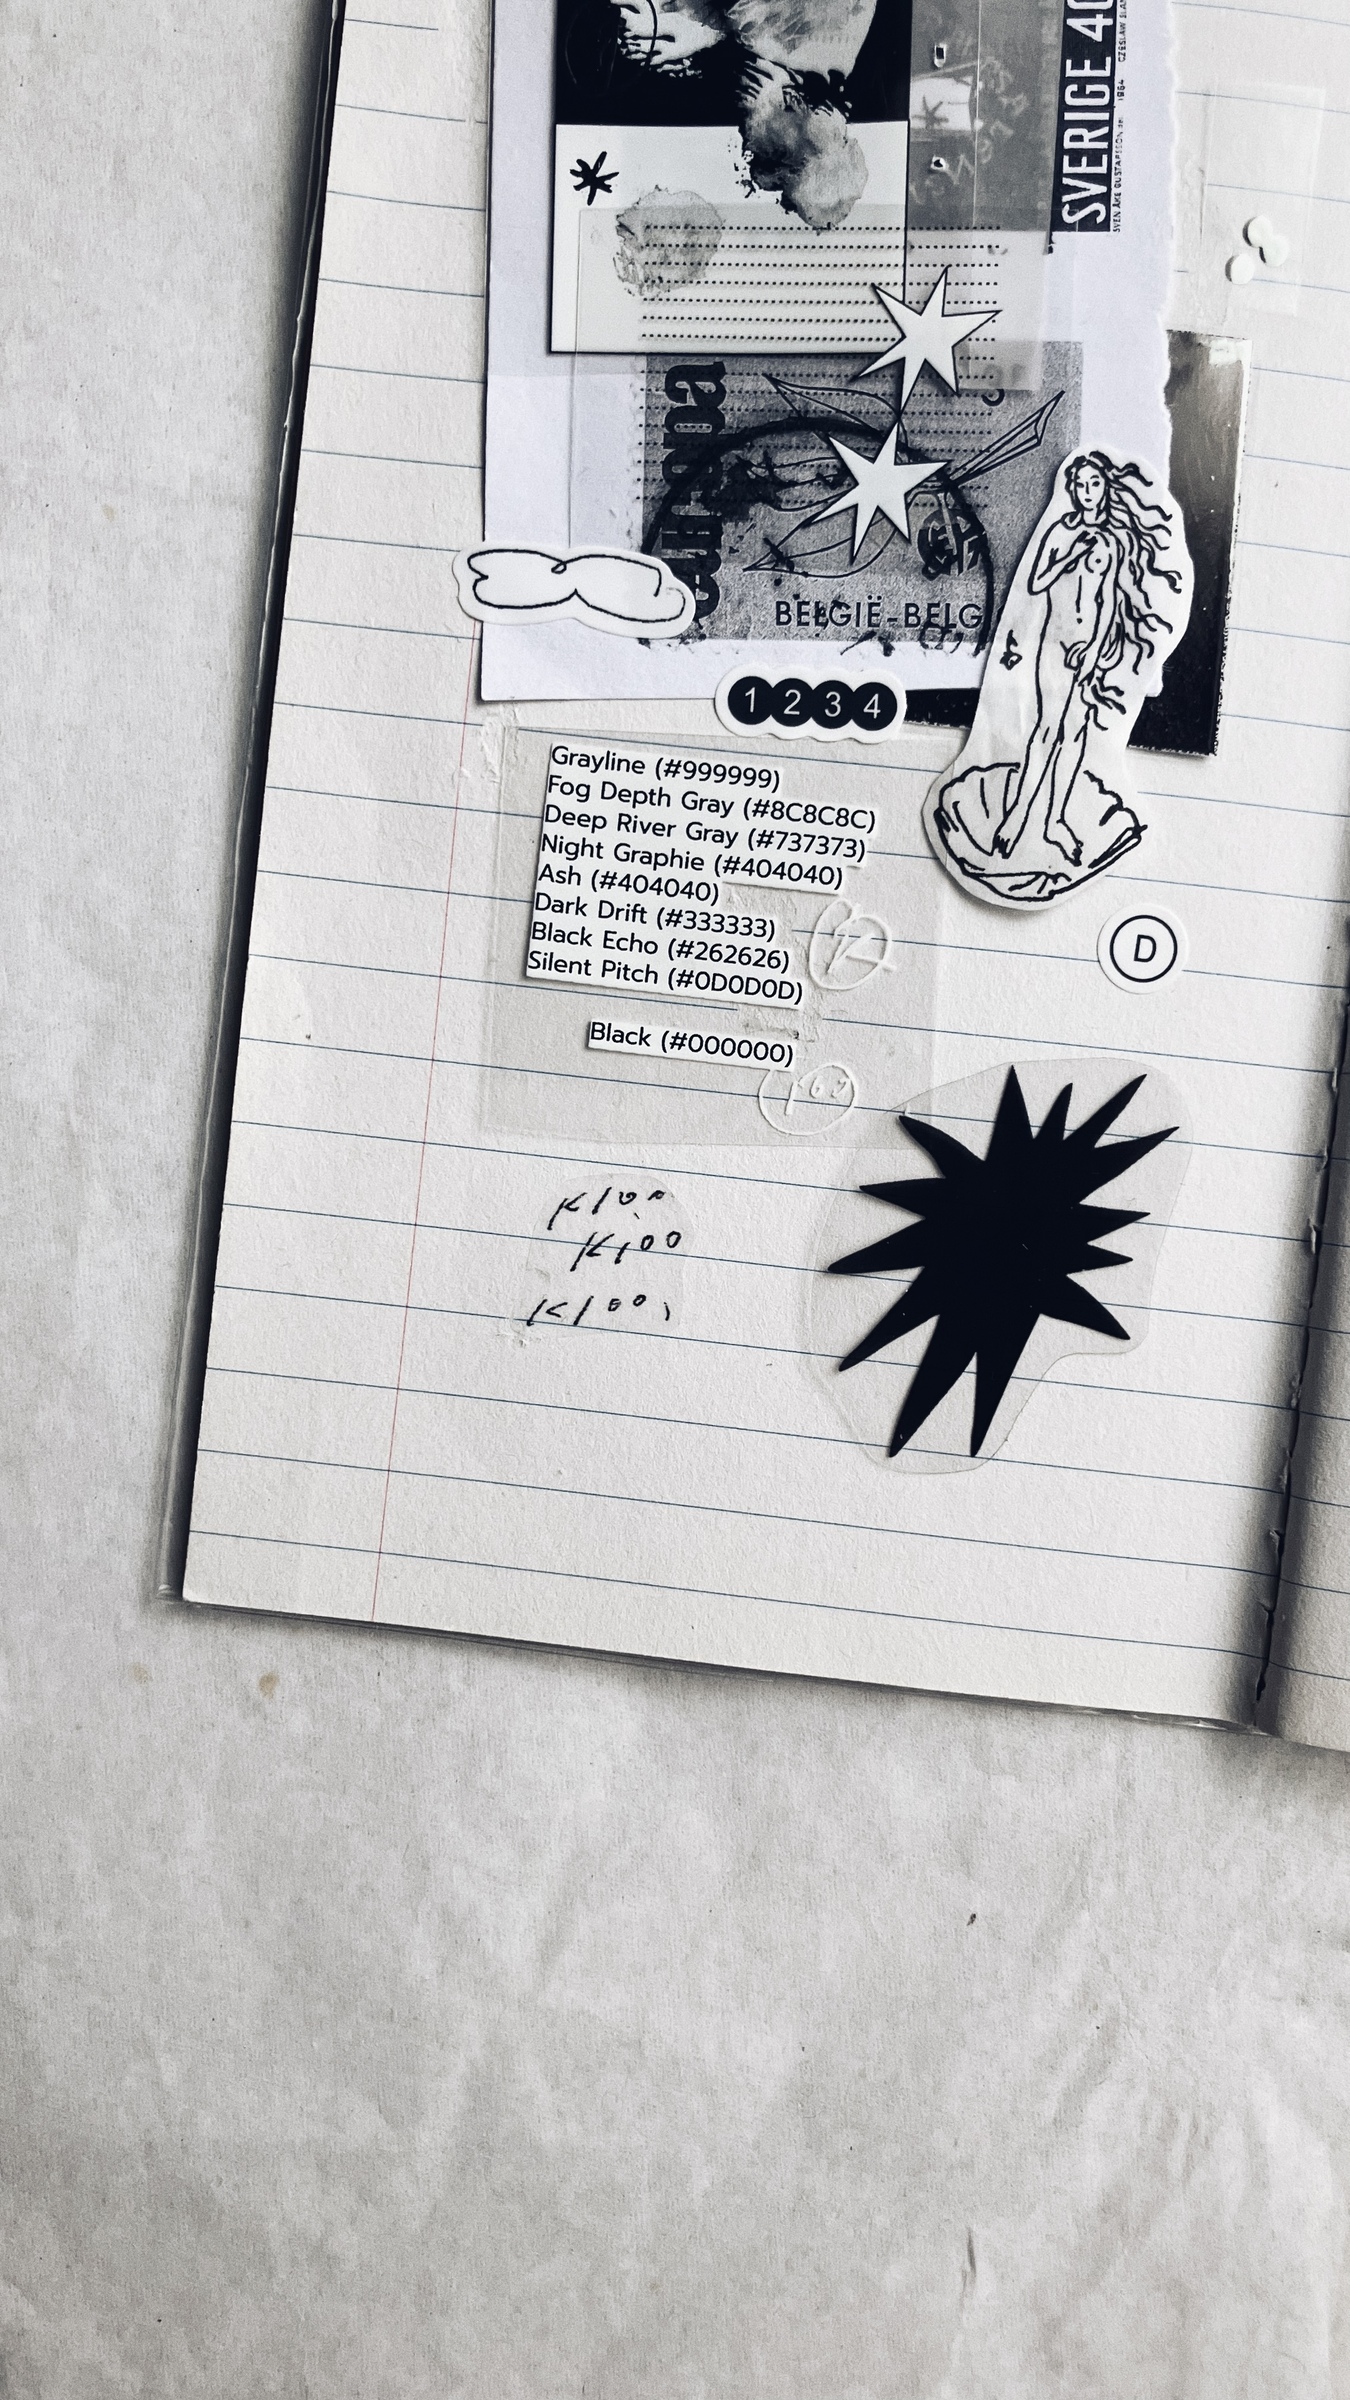 SVERIGE 40
SVEN ÅKE GUSTAFSSON del. 1964 CZESLAW SLAN
BELGIË-BELG
1 2 3 4
Grayline (#999999)
Fog Depth Gray (#8C8C8C)
Deep River Gray (#737373)
Night Graphie (#404040)
Ash (#404040)
Dark Drift (#333333)
Black Echo (#262626)
Silent Pitch (#0D0D0D)
D
Black (#000000)
K100
K100
K100